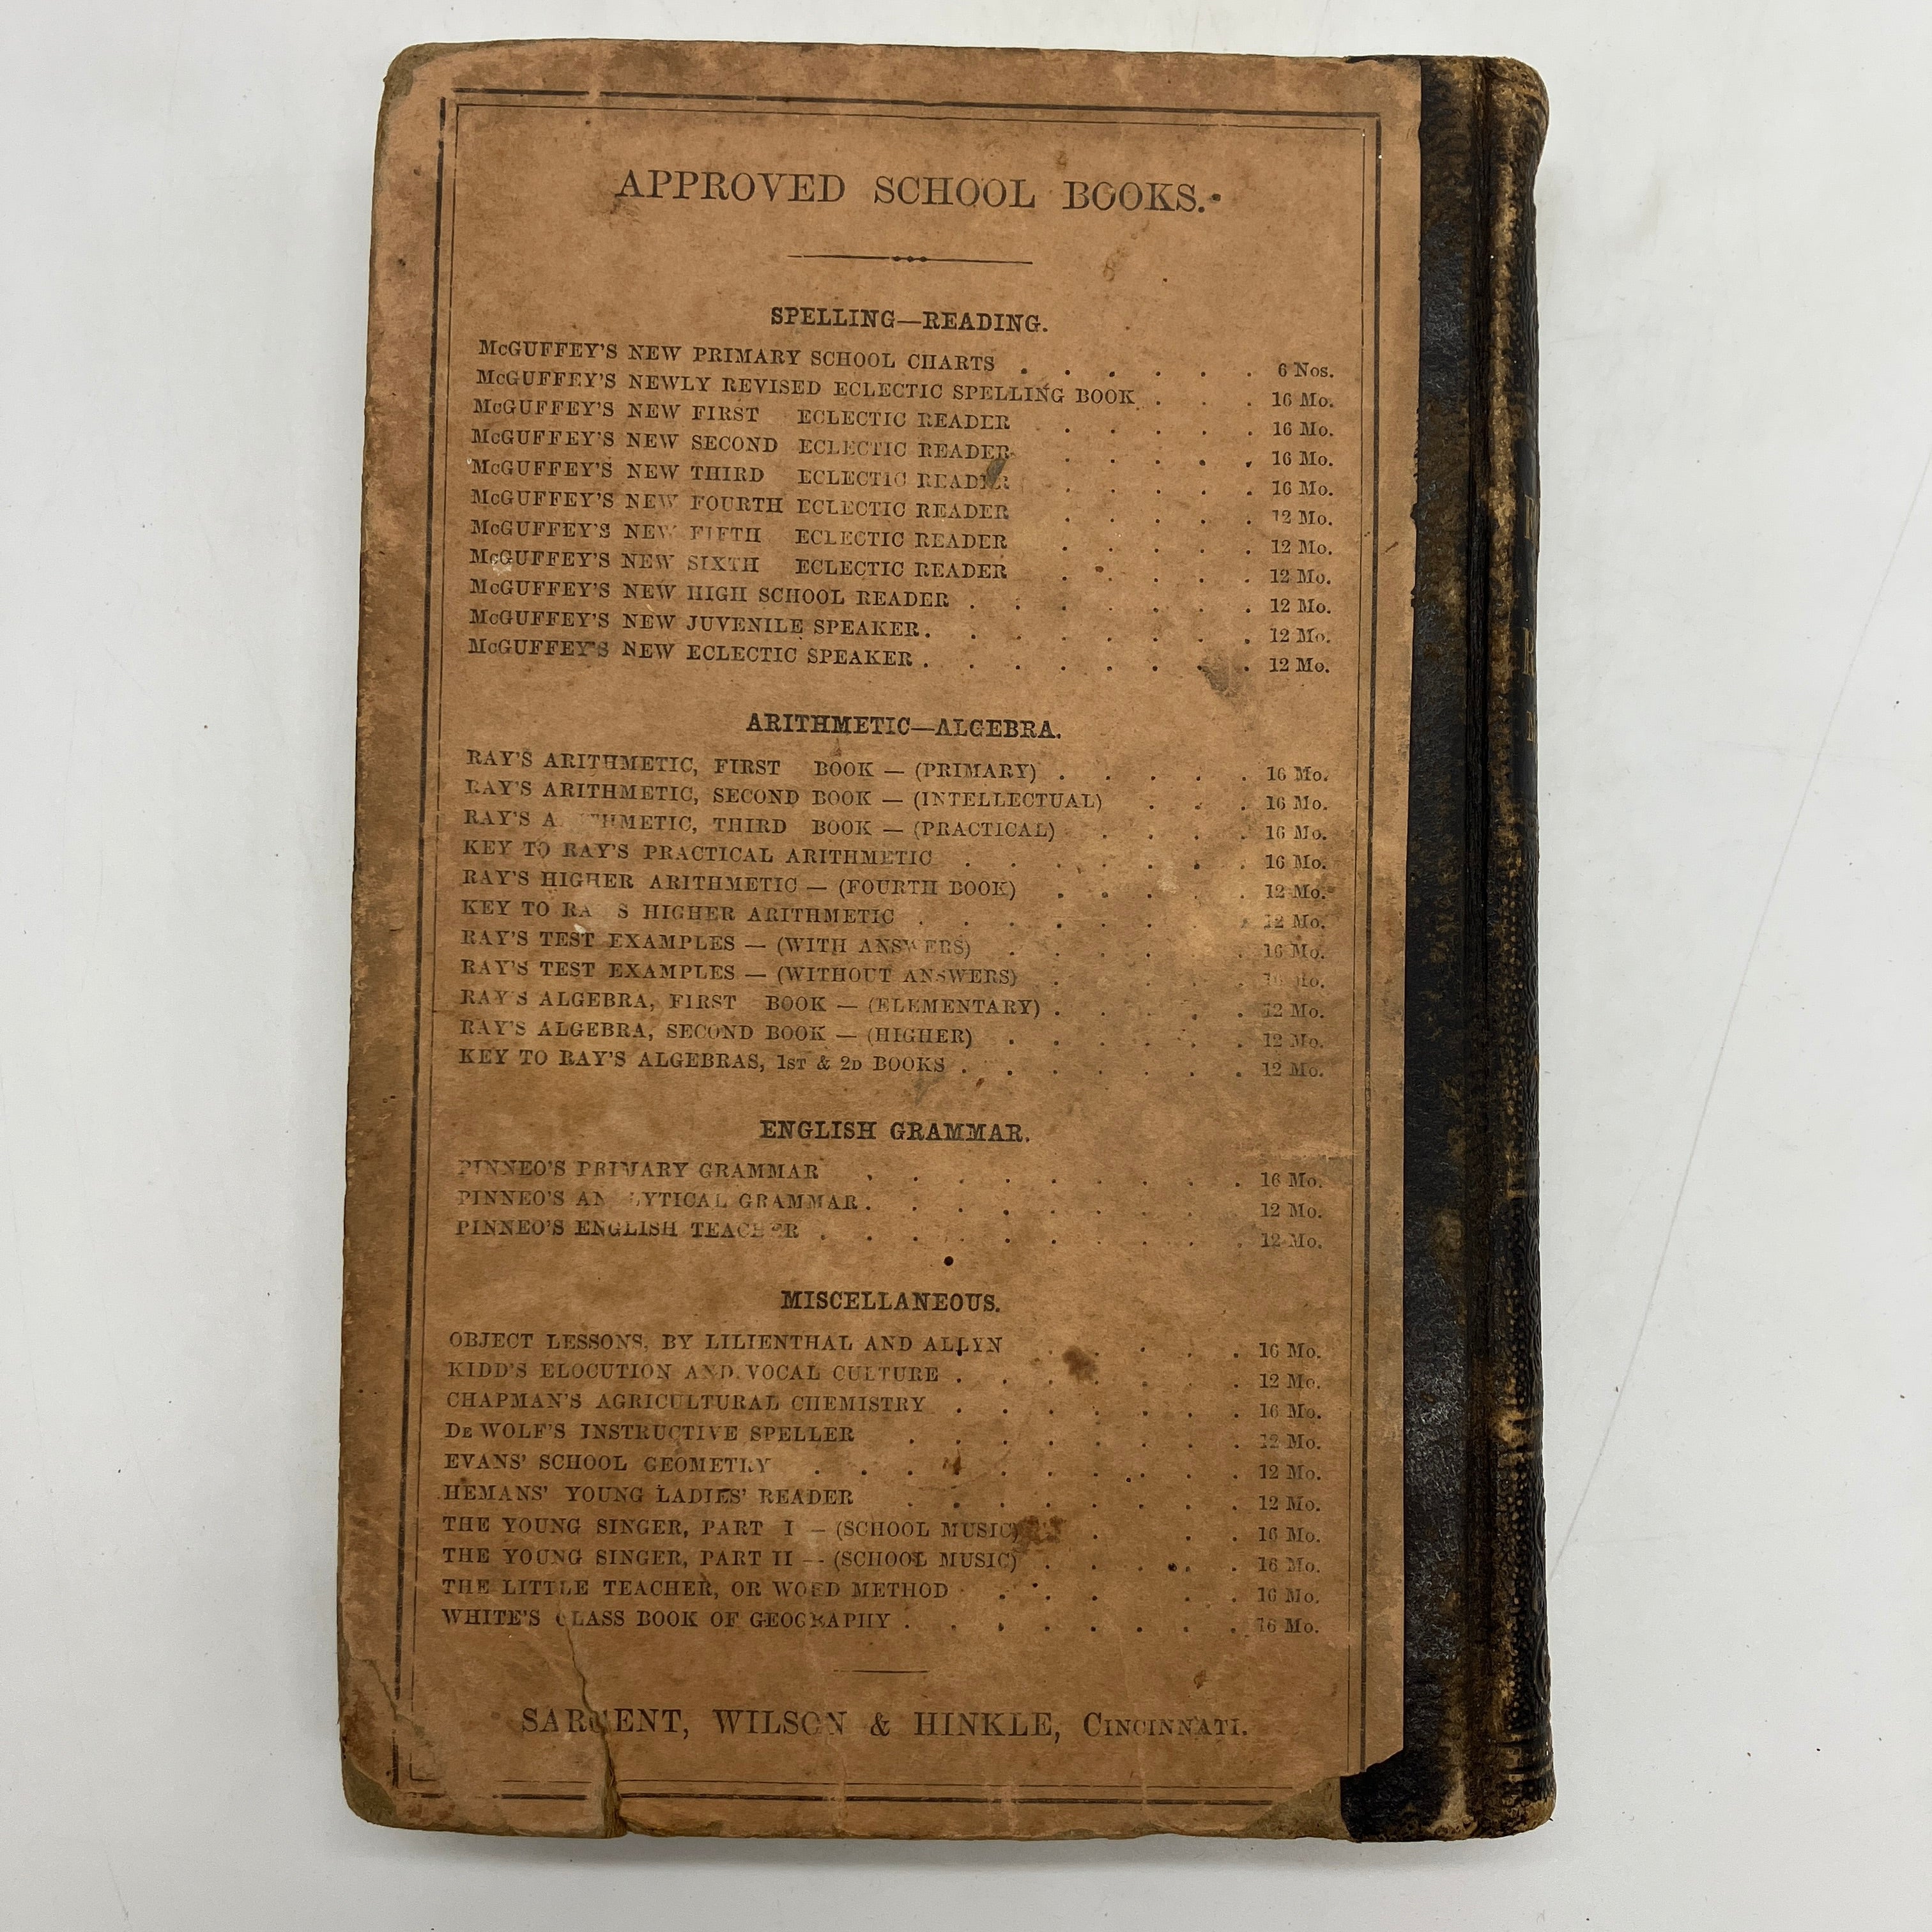 APPROVED SCHOOL BOOKS.
SPELLING—READING.
McGUFFEY'S NEW PRIMARY SCHOOL CHARTS . . . . . . 6 Nos.
McGUFFEY'S NEWLY REVISED ECLECTIC SPELLING BOOK . . . 16 Mo.
McGUFFEY'S NEW FIRST ECLECTIC READER . . . . . 16 Mo.
McGUFFEY'S NEW SECOND ECLECTIC READER . . . . . 16 Mo.
McGUFFEY'S NEW THIRD ECLECTIC READER . . . . . 16 Mo.
McGUFFEY'S NEW FOURTH ECLECTIC READER . . . . . 12 Mo.
McGUFFEY'S NEW FIFTH ECLECTIC READER . . . . . 12 Mo.
McGUFFEY'S NEW SIXTH ECLECTIC READER . . . . . 12 Mo.
McGUFFEY'S NEW HIGH SCHOOL READER . . . . . . . 12 Mo.
McGUFFEY'S NEW JUVENILE SPEAKER . . . . . . . . 12 Mo.
McGUFFEY'S NEW ECLECTIC SPEAKER . . . . . . . . 12 Mo.
ARITHMETIC—ALGEBRA.
RAY'S ARITHMETIC, FIRST BOOK — (PRIMARY) . . . . . 16 Mo.
RAY'S ARITHMETIC, SECOND BOOK — (INTELLECTUAL) . . . 16 Mo.
RAY'S ARITHMETIC, THIRD BOOK — (PRACTICAL) . . . . 16 Mo.
KEY TO RAY'S PRACTICAL ARITHMETIC . . . . . . . 16 Mo.
RAY'S HIGHER ARITHMETIC — (FOURTH BOOK) . . . . . 12 Mo.
KEY TO RAY'S HIGHER ARITHMETIC . . . . . . . . 12 Mo.
RAY'S TEST EXAMPLES — (WITH ANSWERS) . . . . . . 16 Mo.
RAY'S TEST EXAMPLES — (WITHOUT ANSWERS) . . . . .
RAY'S ALGEBRA, FIRST BOOK — (ELEMENTARY) . . . . . 12 Mo.
RAY'S ALGEBRA, SECOND BOOK — (HIGHER) . . . . . . 12 Mo.
KEY TO RAY'S ALGEBRAS, 1ST & 2D BOOKS . . . . . . . 12 Mo.
ENGLISH GRAMMAR.
PINNEO'S PRIMARY GRAMMAR . . . . . . . . . 16 Mo.
PINNEO'S ANALYTICAL GRAMMAR . . . . . . . . . 12 Mo.
PINNEO'S ENGLISH TEACHER . . . . . . . . . . 12 Mo.
MISCELLANEOUS.
OBJECT LESSONS, BY LILIENTHAL AND ALLYN . . . . . 16 Mo.
KIDD'S ELOCUTION AND VOCAL CULTURE . . . . . . . 12 Mo.
CHAPMAN'S AGRICULTURAL CHEMISTRY . . . . . . . 16 Mo.
DE WOLF'S INSTRUCTIVE SPELLER . . . . . . . . 12 Mo.
EVANS' SCHOOL GEOMETRY . . . . . . . . . . 12 Mo.
HEMANS' YOUNG LADIES' READER . . . . . . . . 12 Mo.
THE YOUNG SINGER, PART I — (SCHOOL MUSIC) . . . . 16 Mo.
THE YOUNG SINGER, PART II — (SCHOOL MUSIC) . . . . . 16 Mo.
THE LITTLE TEACHER, OR WORD METHOD . . . . . . 16 Mo.
WHITE'S CLASS BOOK OF GEOGRAPHY . . . . . . . . 16 Mo.
SARGENT, WILSON & HINKLE, CINCINNATI.